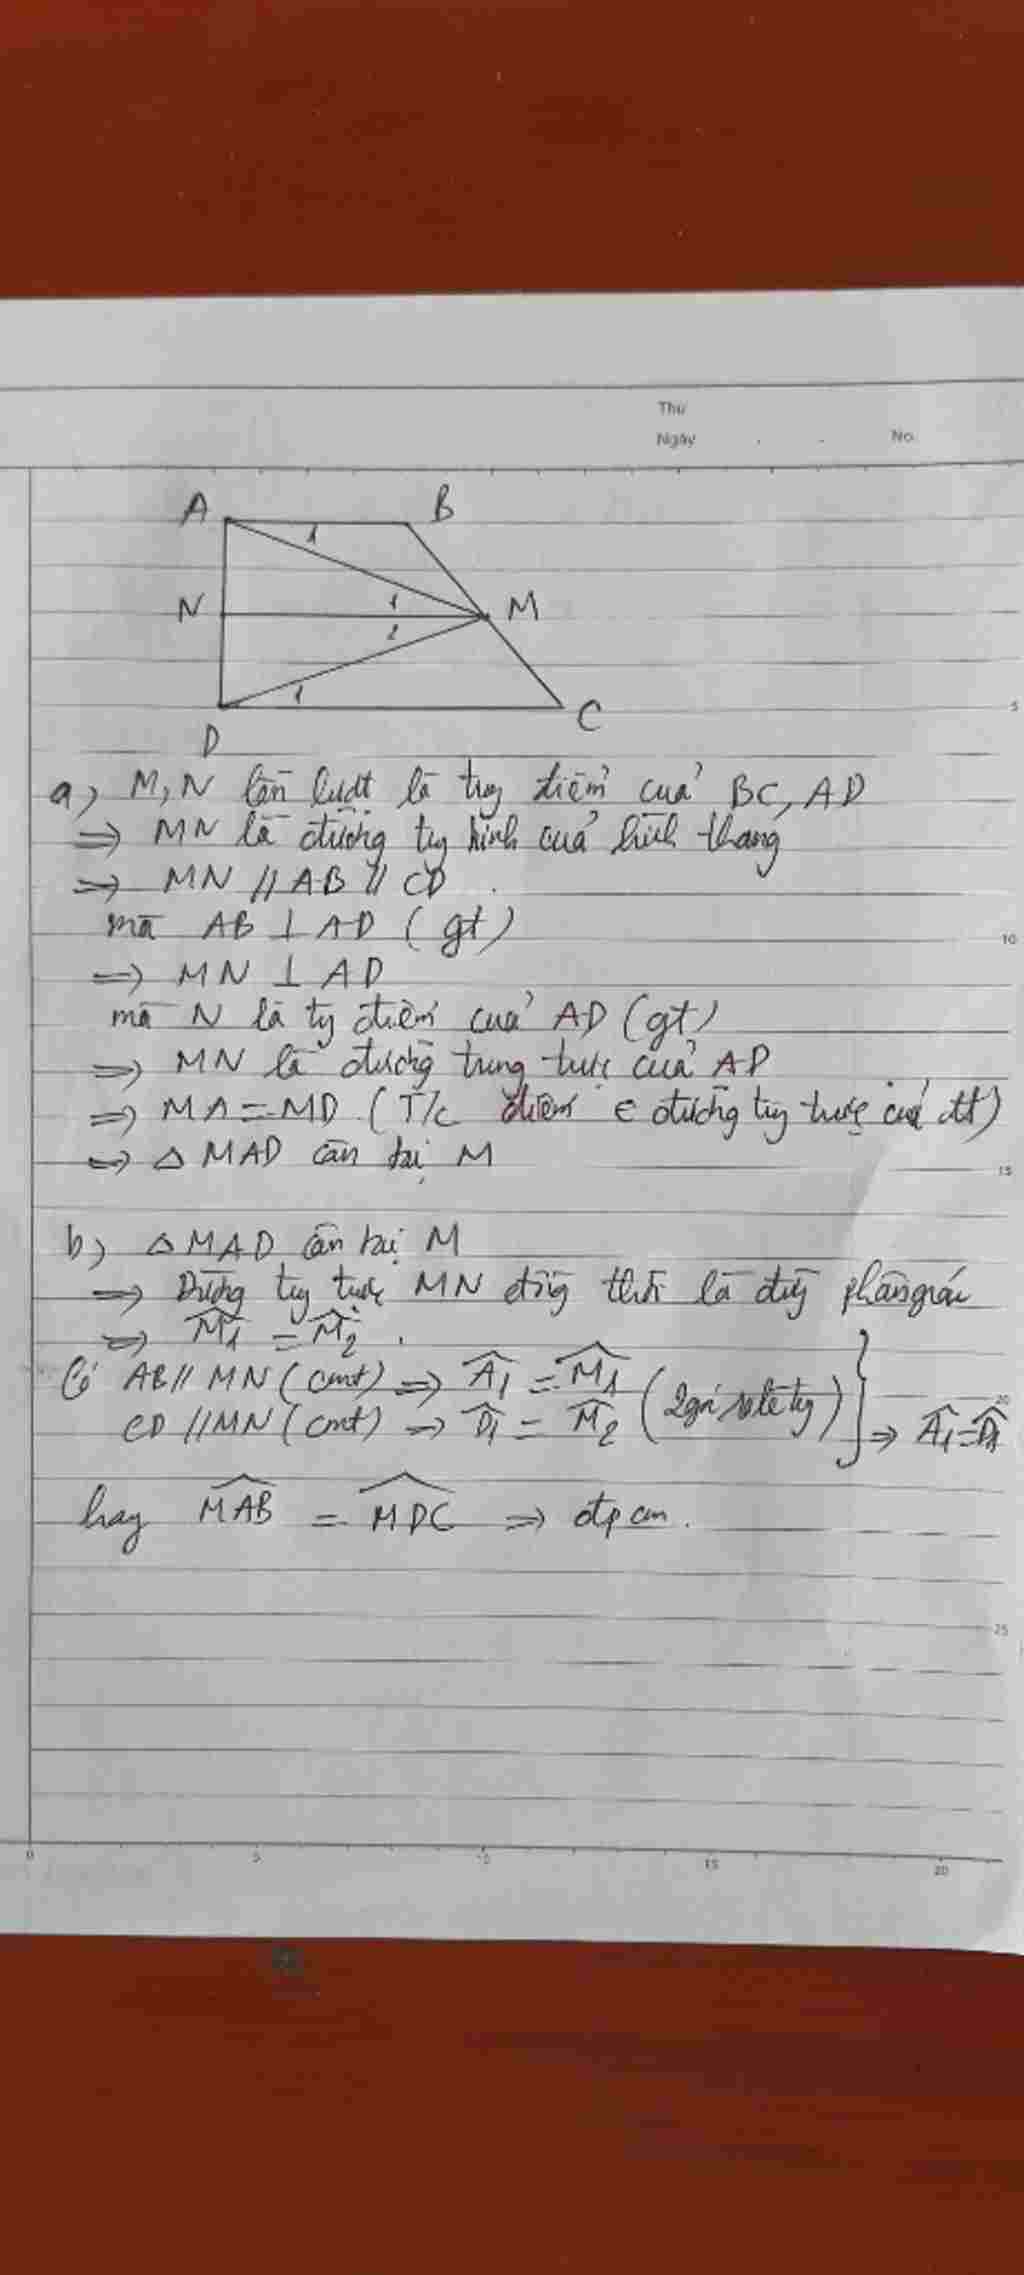 Thứ
Ngày . . No.
A B
1
N 1 M
2
1
D C
5
a) M, N lần lượt là trg điểm của BC, AD
=> MN là đường tg bình của hình thang
=> MN // AB // CD
mà AB ⊥ AD (gt)
10
=> MN ⊥ AD
mà N là tg điểm của AD (gt)
=> MN là đường trung trực của AD
=> MA = MD (T/c điểm ∈ đường tg trực của đt)
=> △ MAD cân tại M
15
b) △ MAD cân tại M
=> Đường tg trực MN đồng thời là đg phân giác
=> M̂1 = M̂2.
Có AB // MN (cmt) => Â1 = M̂1
CD // MN (cmt) => D̂1 = M̂2 (2 góc so le tg) } => Â1 = D̂1
20
hay M̂AB = M̂DC => đpcm.
25
0 5 10 15 20